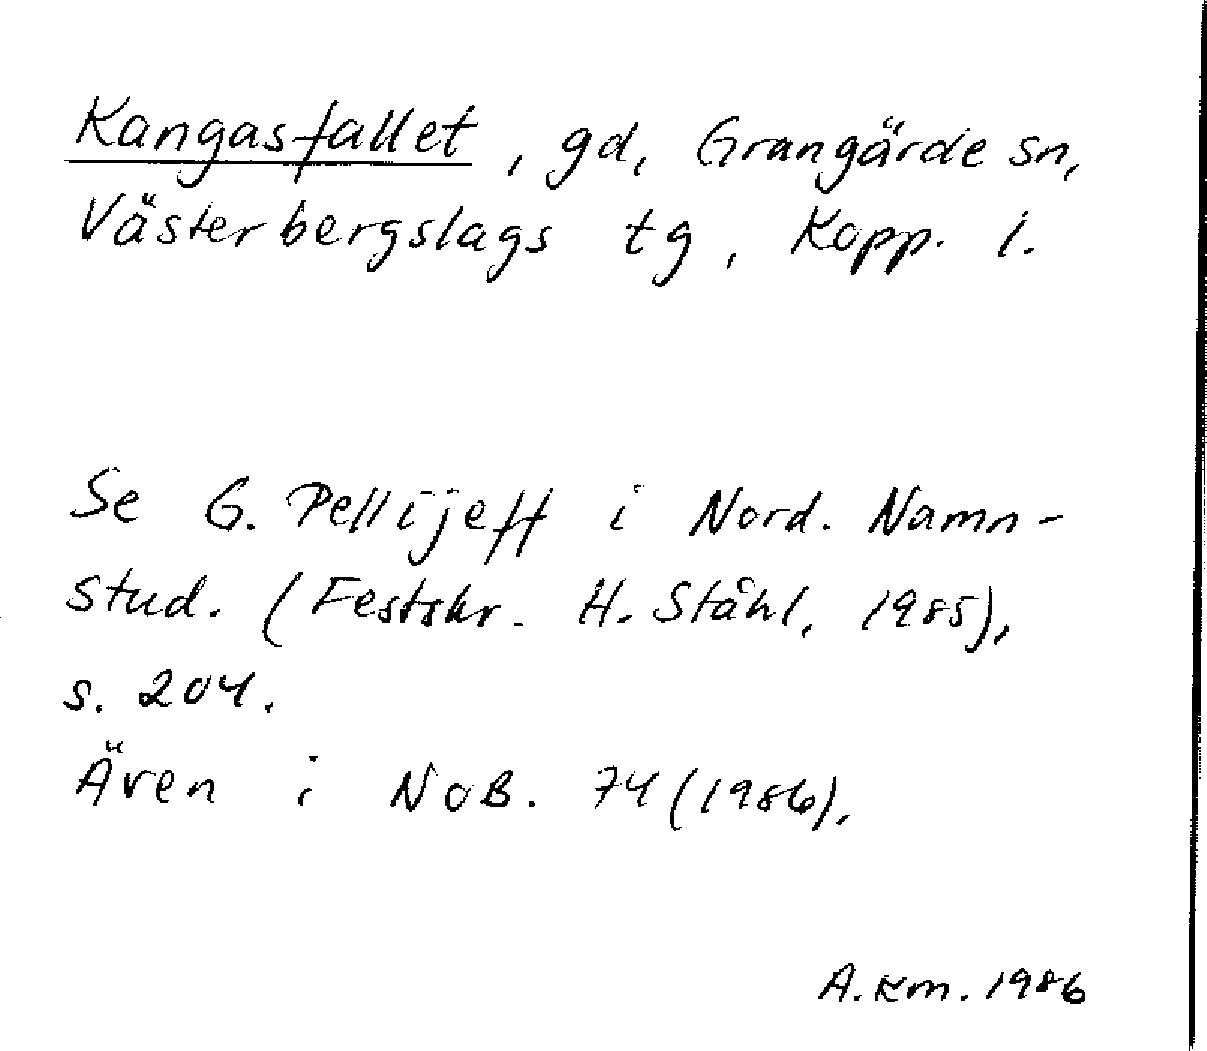 Kangasfallet, gd, Grangärde sn,
Västerbergslags tg, Kopp. l.
Se G. Pellijeff i Nord. Namn-
stud. (Festskr. H. Ståhl, 1985),
s. 204.
Även i NoB. 74 (1986),
A.Km. 1986